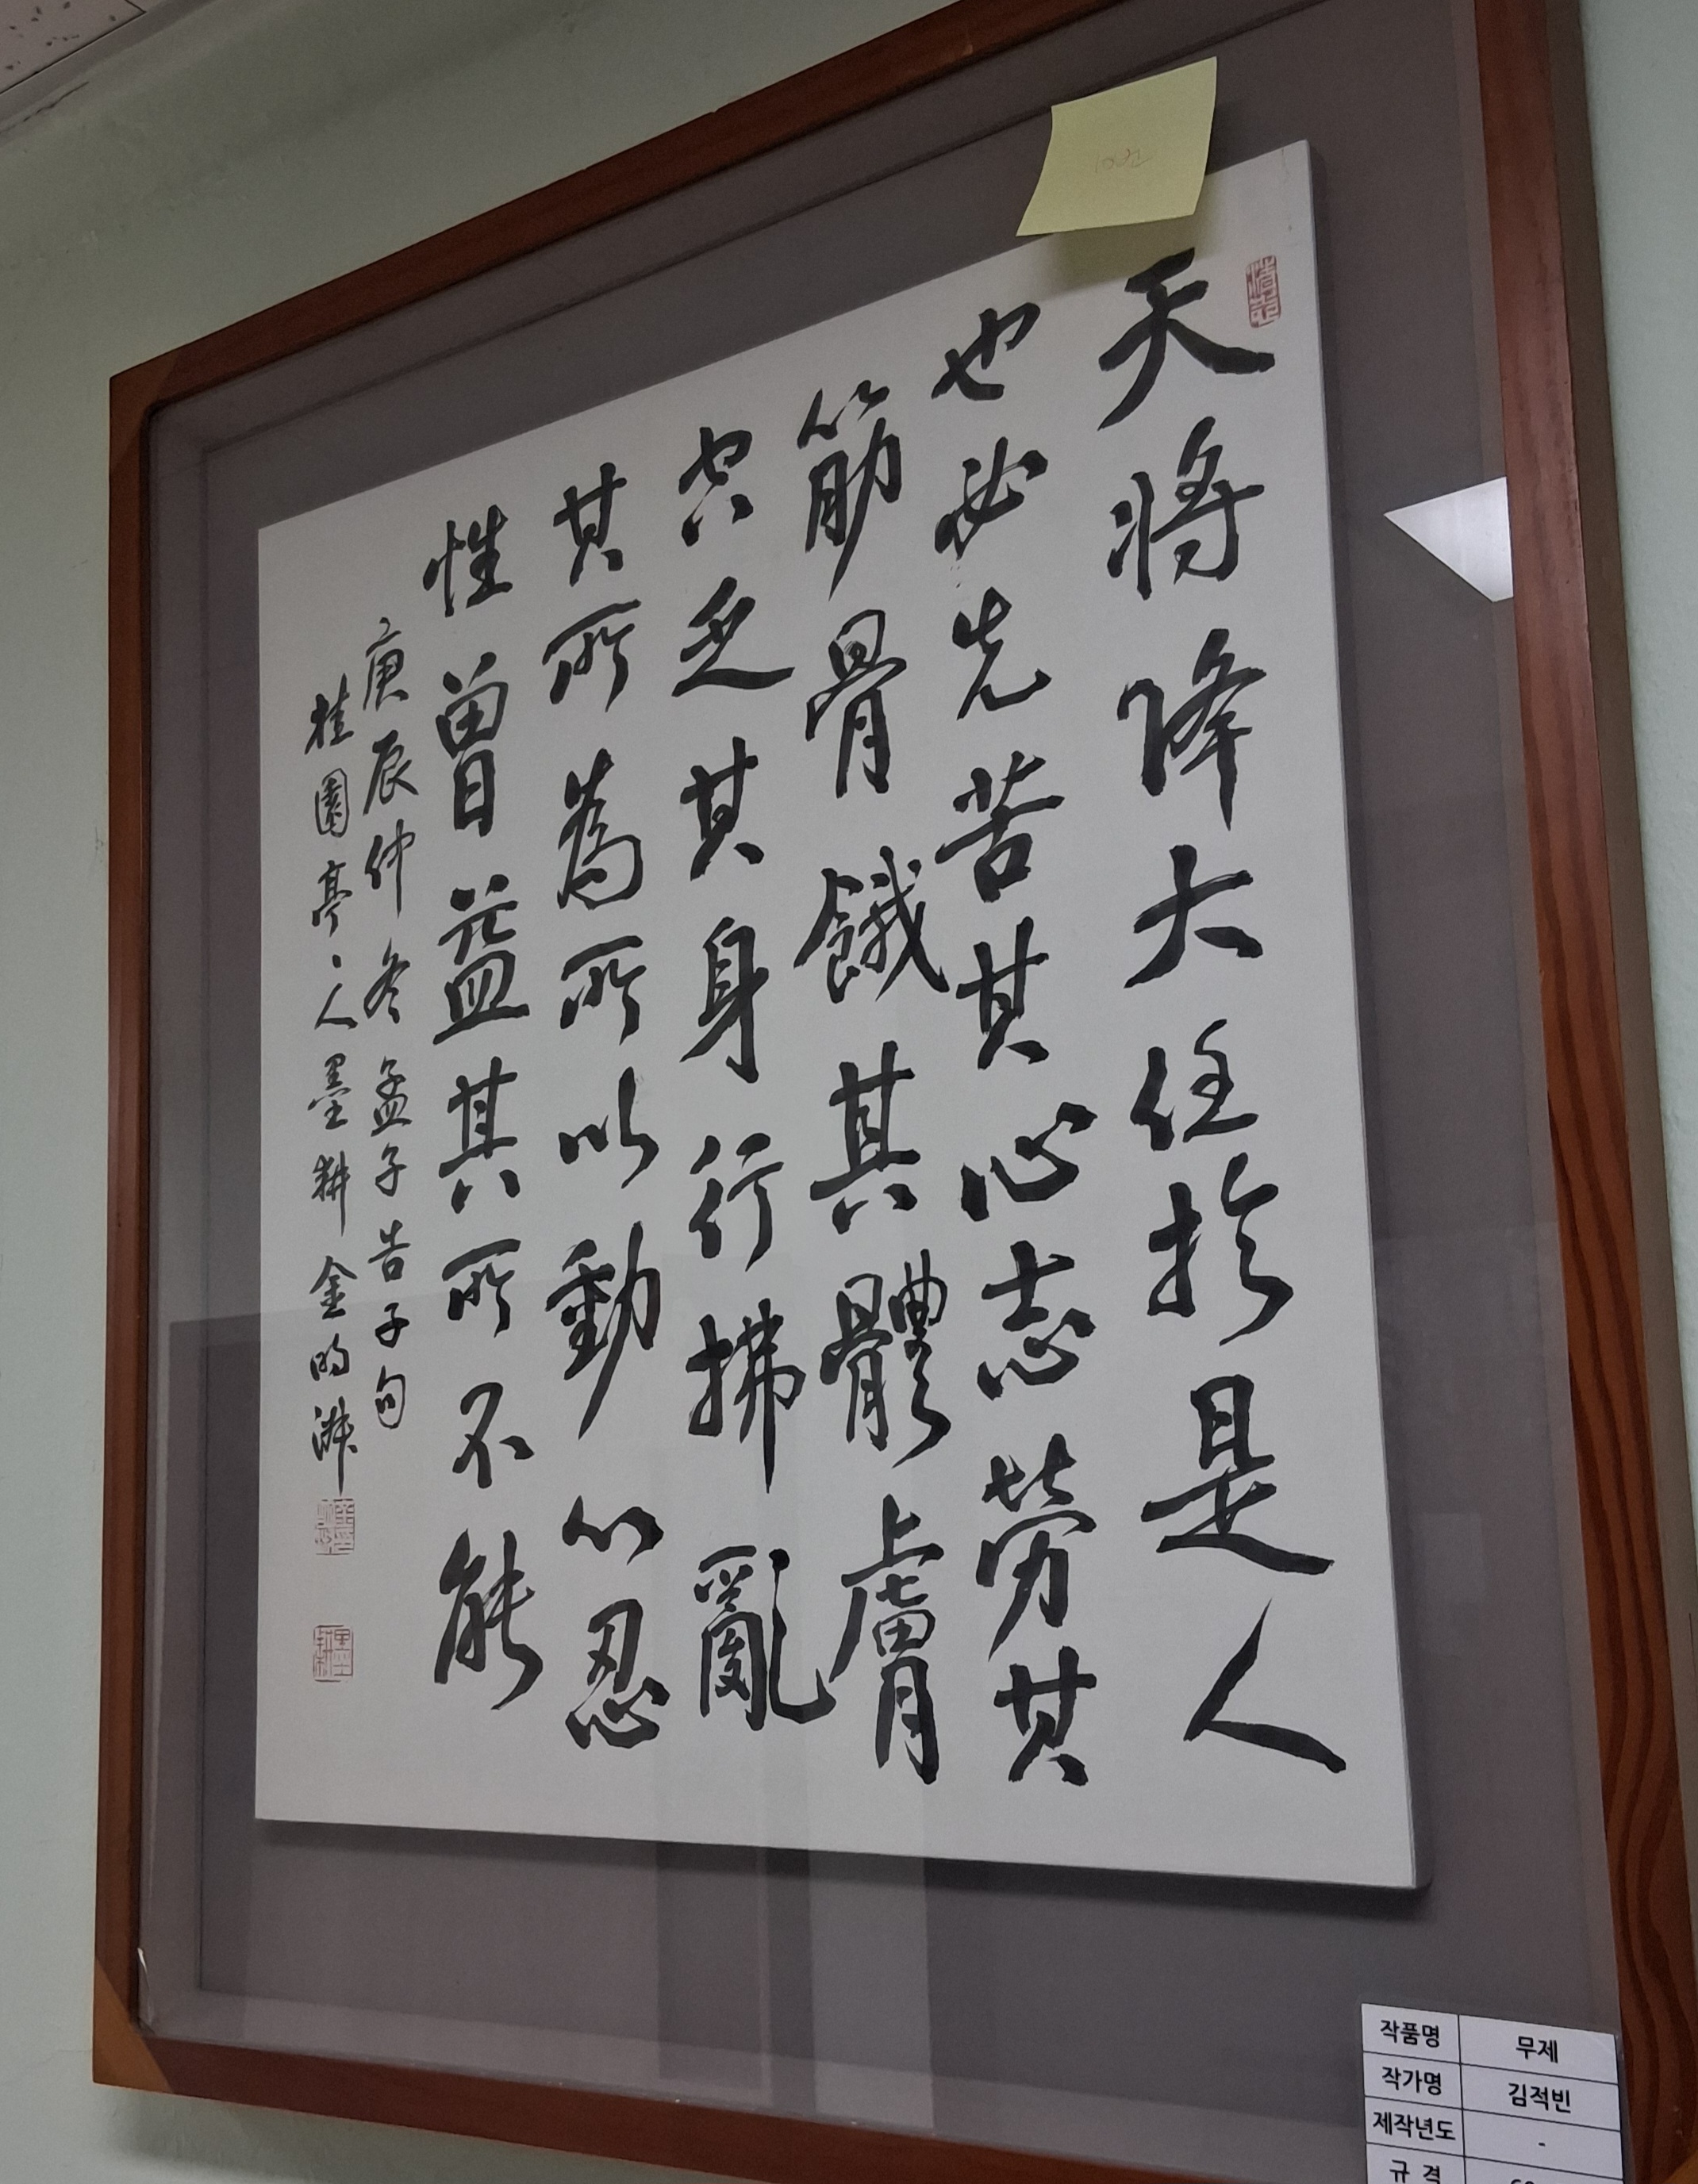 天將降大任扵是人
也必先苦其心志勞其
筋骨餓其體膚
空乏其身行拂亂
其所為所以動心忍
性曾益其所不能
庚辰仲冬孟子告子句
桂園亭主人墨耕金的
墨耕
작품명 무제
작가명 김적빈
제작년도 -
규격